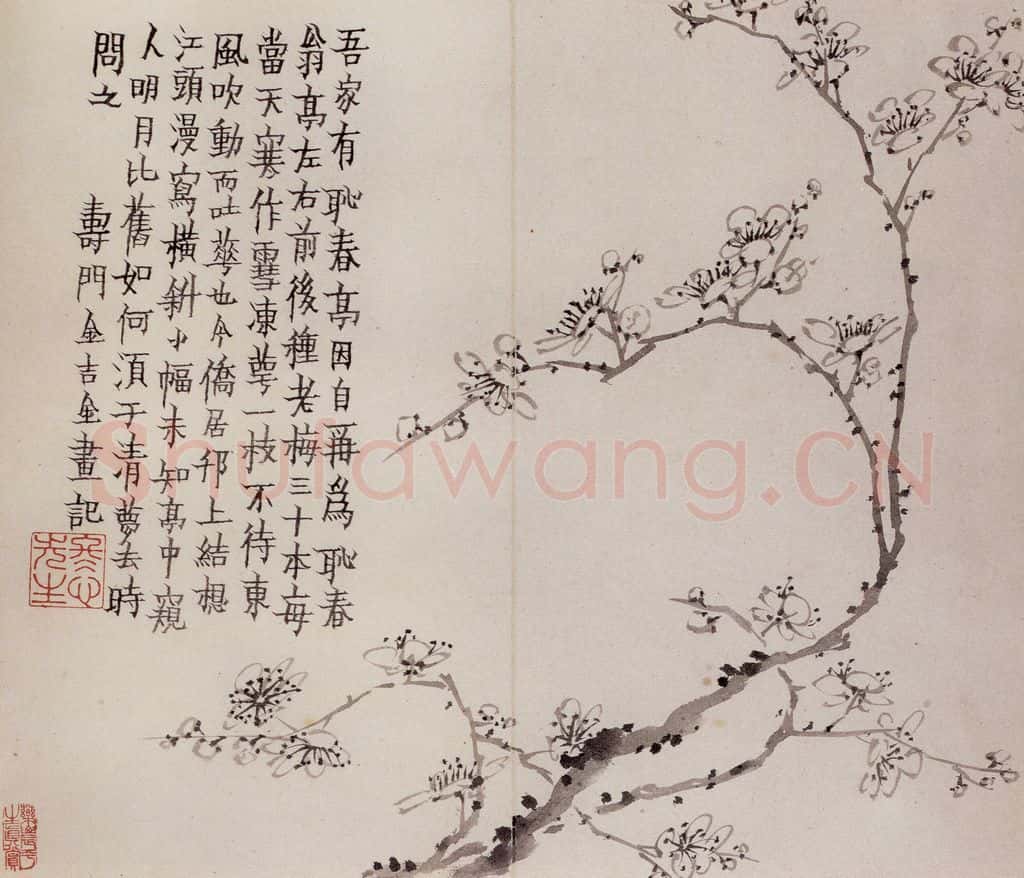 吾家有恥春亭因自稱為恥春
翁亭左右前後種老梅三十本每
當天寒作雪凍萼一枝不待東
風吹動而吐華也今僑居邗上結想
江頭漫寫橫斜小幅未知亭中窺
人明月比舊如何須于清夢去時
問之
壽門金吉金畫記
冬心先生
Shufawang.CN